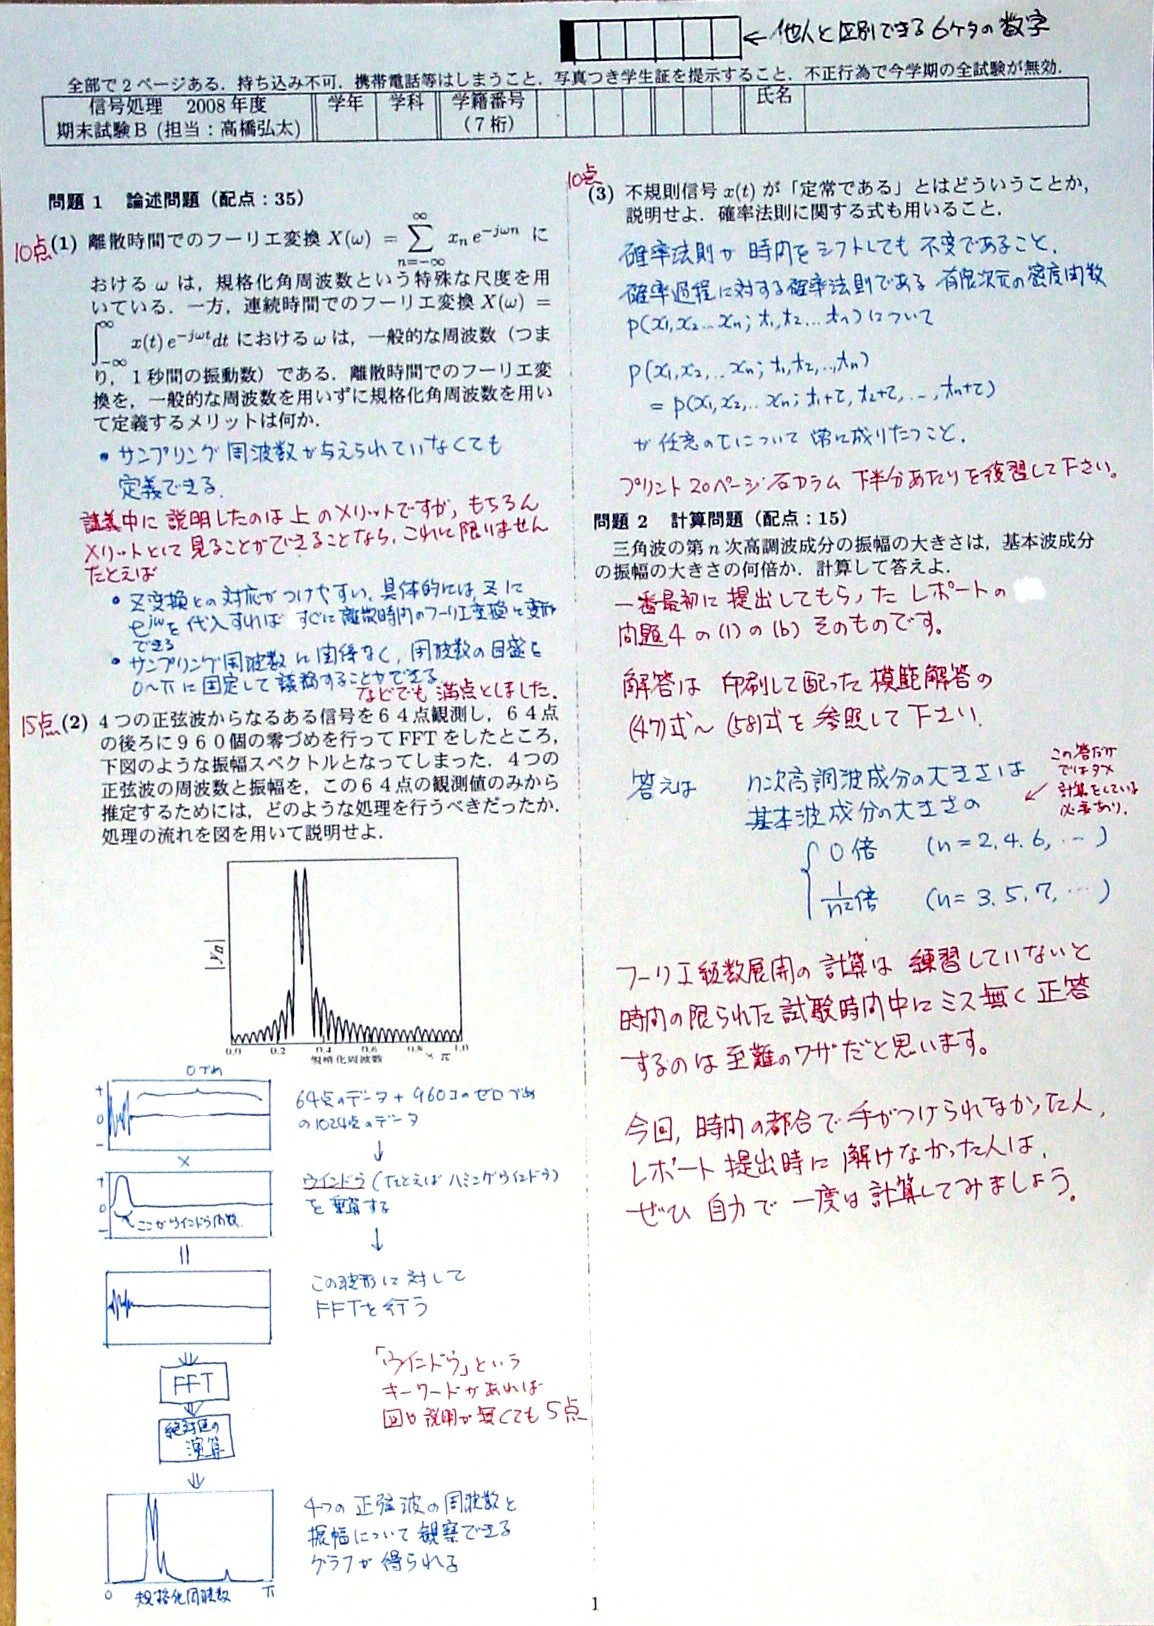 ←他人と区別できる6ケタの数字
全部で2ページある. 持ち込み不可. 携帯電話等はしまうこと. 写真つき学生証を提示すること. 不正行為で今学期の全試験が無効.
信号処理 2008年度
期末試験B (担当:高橋弘太)
学年
学科
学籍番号
(7桁)
氏名
問題1 論述問題 (配点:35)
10点 (1) 離散時間でのフーリエ変換 X(ω) = ∑_{n=−∞}^{∞} x_n e^{−jωn} に
おける ω は, 規格化角周波数という特殊な尺度を用
いている. 一方, 連続時間でのフーリエ変換 X(ω) =
∫_{−∞}^{∞} x(t) e^{−jωt}dt における ω は, 一般的な周波数 (つま
り, 1秒間の振動数) である. 離散時間でのフーリエ変
換を, 一般的な周波数を用いずに規格化角周波数を用い
て定義するメリットは何か.
• サンプリング周波数が与えられていなくても
定義できる.
講義中に説明したのは上のメリットですが, もちろん
メリットとして見ることができることなら, これに限りません
たとえば
• Z変換との対応がつけやすい. 具体的には, Zに
e^{jω}を代入すれば すぐに離散時間のフーリエ変換に変形
できる
• サンプリング周波数に関係なく, 周波数の目盛を
0〜πに固定して議論することができる
などでも満点としました.
15点 (2) 4つの正弦波からなるある信号を64点観測し, 64点
の後ろに960個の零づめを行ってFFTをしたところ,
下図のような振幅スペクトルとなってしまった. 4つの
正弦波の周波数と振幅を, この64点の観測値のみから
推定するためには, どのような処理を行うべきだったか.
処理の流れを図を用いて説明せよ.
|Yn|
0.0 0.2 0.4 0.6 0.8 1.0
規格化周波数 × π
0づめ
+
0
−
64点のデータ+960コのゼロづめ
の1024点のデータ
↓
×
+
0
−
ここがウインドウ関数
ウインドウ (たとえばハミングウインドウ)
を乗算する
↓
=
この波形に対して
FFTを行う
FFT
絶対値の
演算
「ウインドウ」という
キーワードがあれば
図や説明が無くても5点
4つの正弦波の周波数と
振幅について観察できる
グラフが得られる
0 規格化周波数 π
10点
(3) 不規則信号 x(t) が「定常である」とはどういうことか,
説明せよ. 確率法則に関する式も用いること.
確率法則が時間をシフトしても不変であること.
確率過程に対する確率法則である有限次元の密度関数
p(x1,x2…xn; t1,t2…tn)について
p(x1,x2,…xn; t1,t2,…,tn)
= p(x1,x2,…xn; t1+τ, t2+τ, …, tn+τ)
が任意のτについて常に成りたつこと.
プリント20ページ右カラム下半分あたりを復習して下さい。
問題2 計算問題 (配点:15)
三角波の第n次高調波成分の振幅の大きさは, 基本波成分
の振幅の大きさの何倍か. 計算して答えよ.
一番最初に提出してもらったレポートの
問題4の(1)の(b)そのものです。
解答は印刷して配った模範解答の
(47)式〜(58)式を参照して下さい.
答えは n次高調波成分の大きさは
基本波成分の大きさの
この答だけ
ではダメ
計算をしている
必要あり.
0倍 (n=2,4,6,…)
1/n²倍 (n=3,5,7,…)
フーリエ級数展開の計算は練習していないと
時間の限られた試験時間中にミス無く正答
するのは至難のワザだと思います。
今回, 時間の都合で手がつけられなかった人,
レポート提出時に解けなかった人は,
ぜひ自力で一度は計算してみましょう。
1